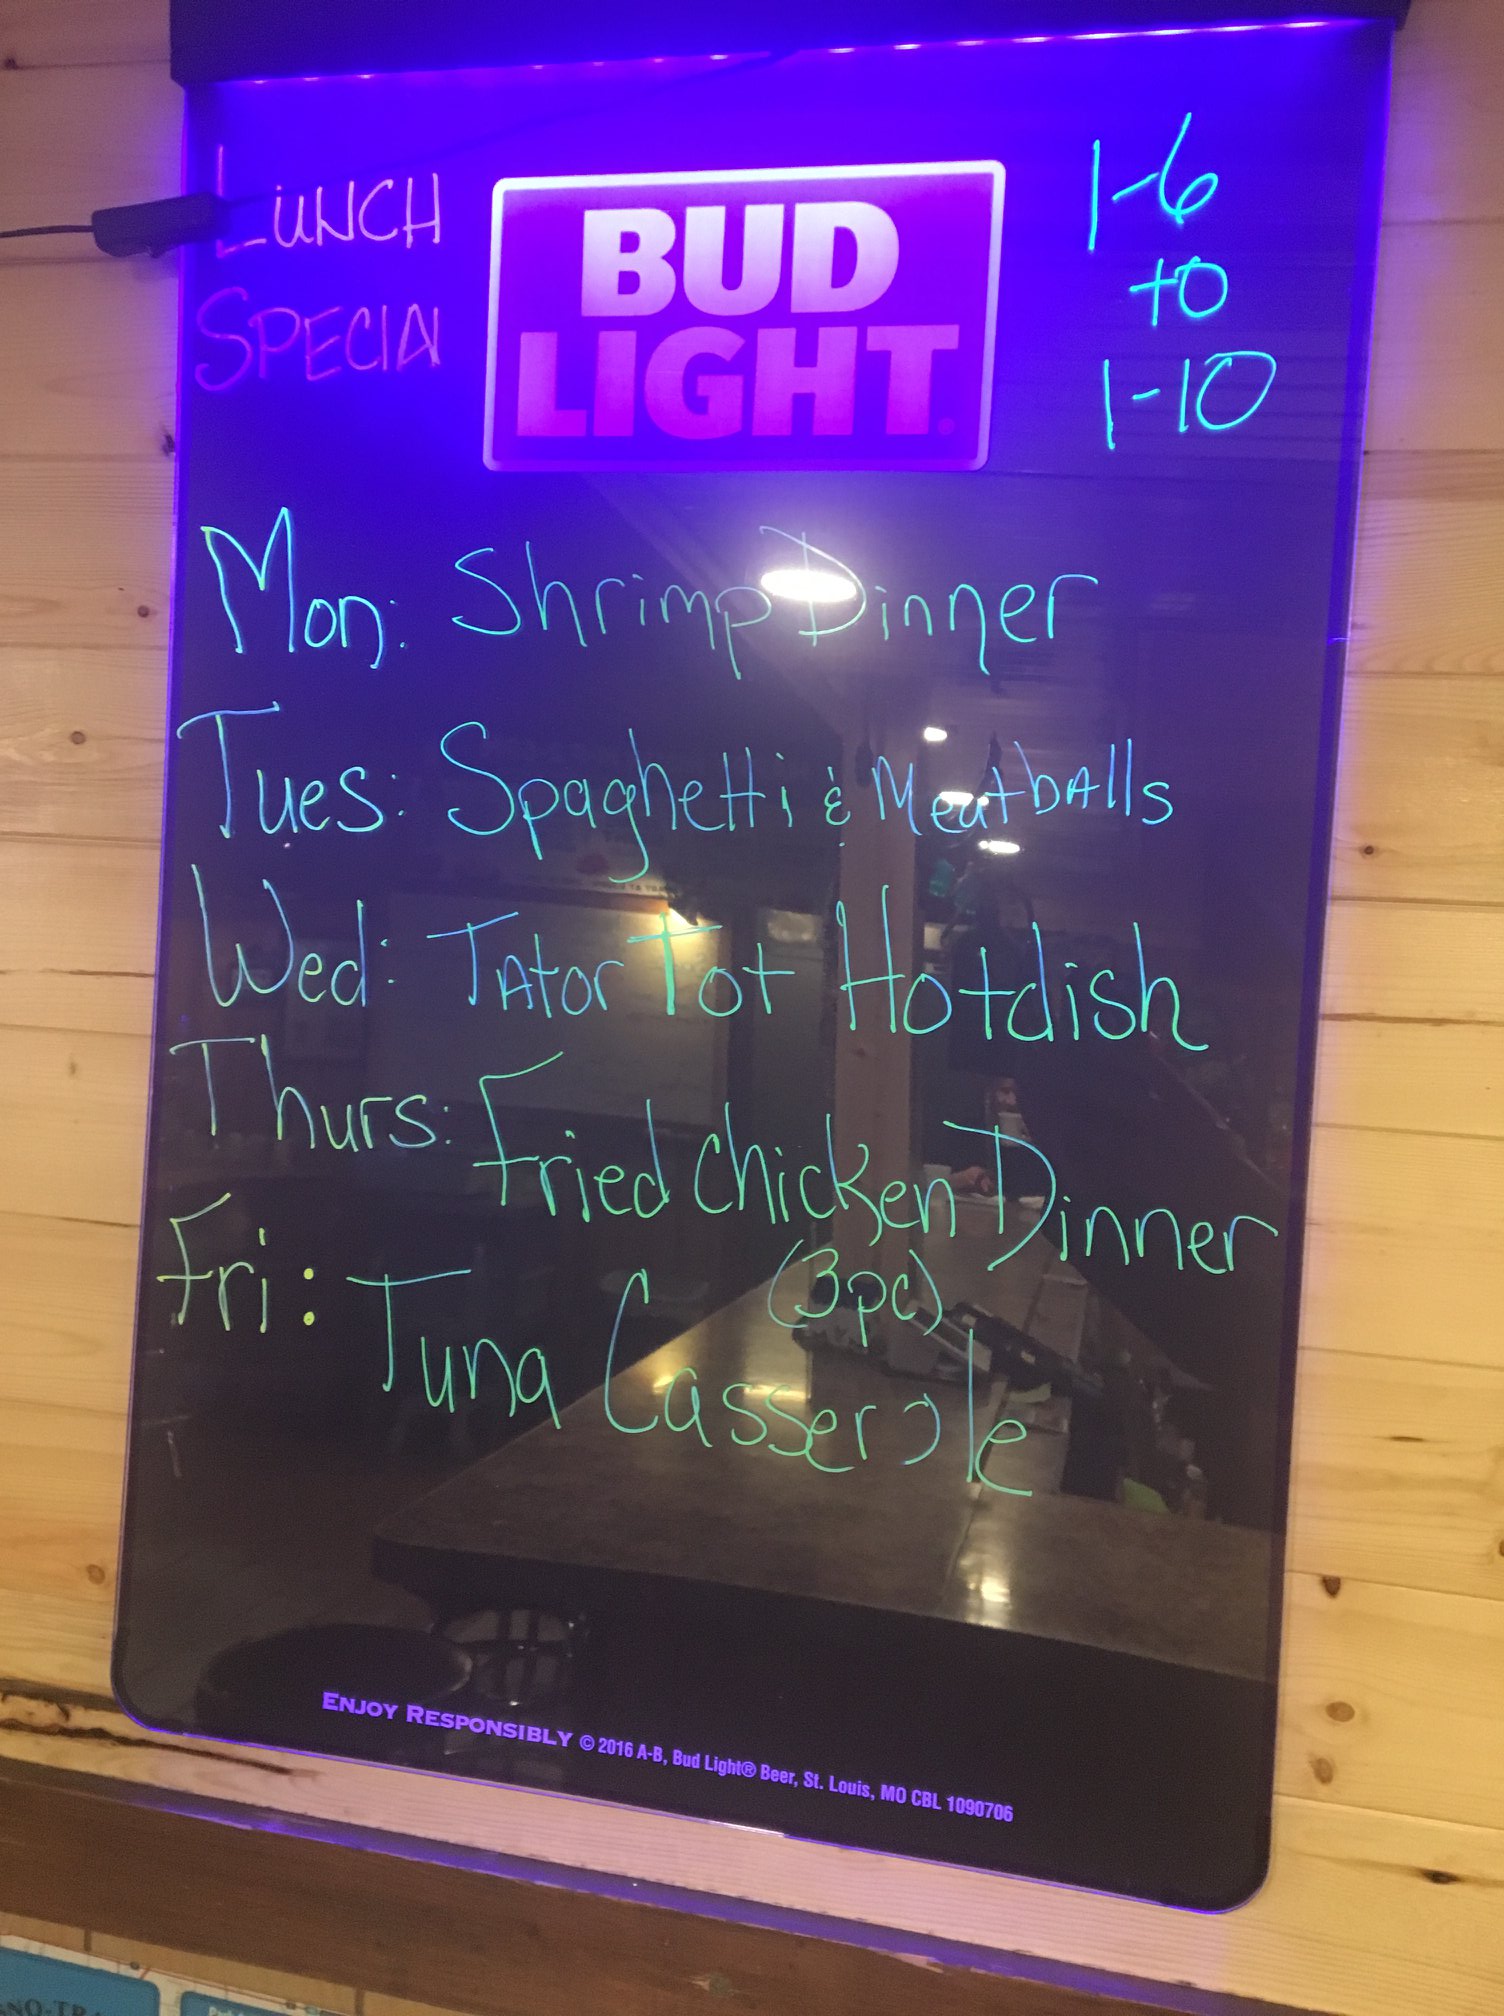 LUNCH
SPECIAL
BUD
LIGHT
1-6
to
1-10
Mon: Shrimp Dinner
Tues: Spaghetti & Meatballs
Wed: Tator Tot Hotdish
Thurs: Fried Chicken Dinner
(3pc)
Fri: Tuna Casserole
ENJOY RESPONSIBLY © 2016 A-B, Bud Light® Beer, St. Louis, MO CBL 1090706